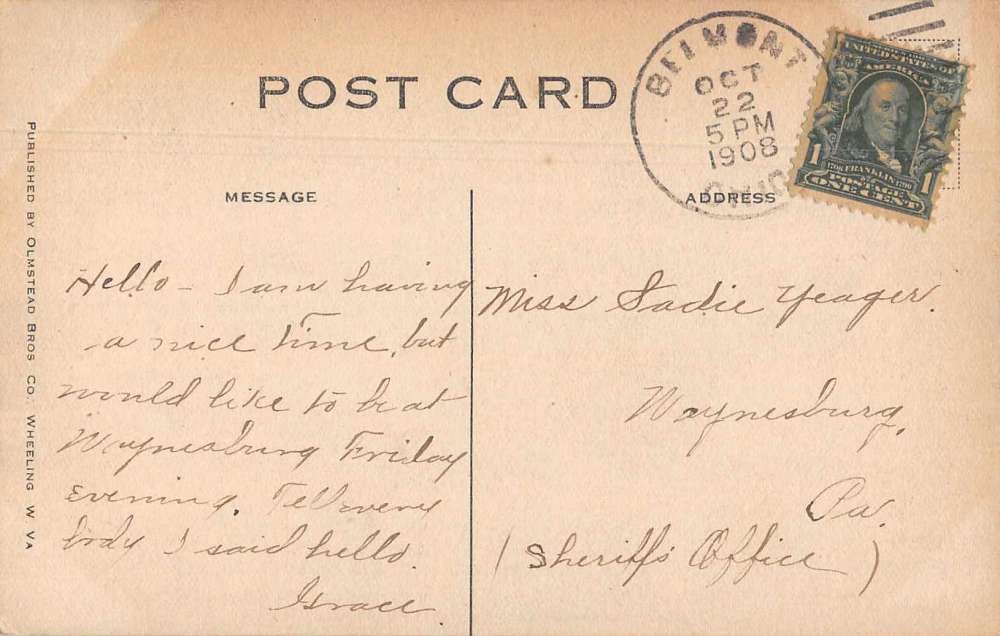 POST CARD
BELMONT
OCT
22
5 PM
1908
OHIO
UNITED STATES OF
AMERICA
1706 FRANKLIN 1790
POSTAGE
1 ONE CENT 1
PUBLISHED BY OLMSTEAD BROS CO. WHEELING W VA
MESSAGE
Hello – I am having
a nice time, but
would like to be at
Waynesburg Friday
evening. Tell every
body I said hello.
Grace
ADDRESS
Miss Sadie Yeager.
Waynesburg,
Pa.
(Sheriff's Office)